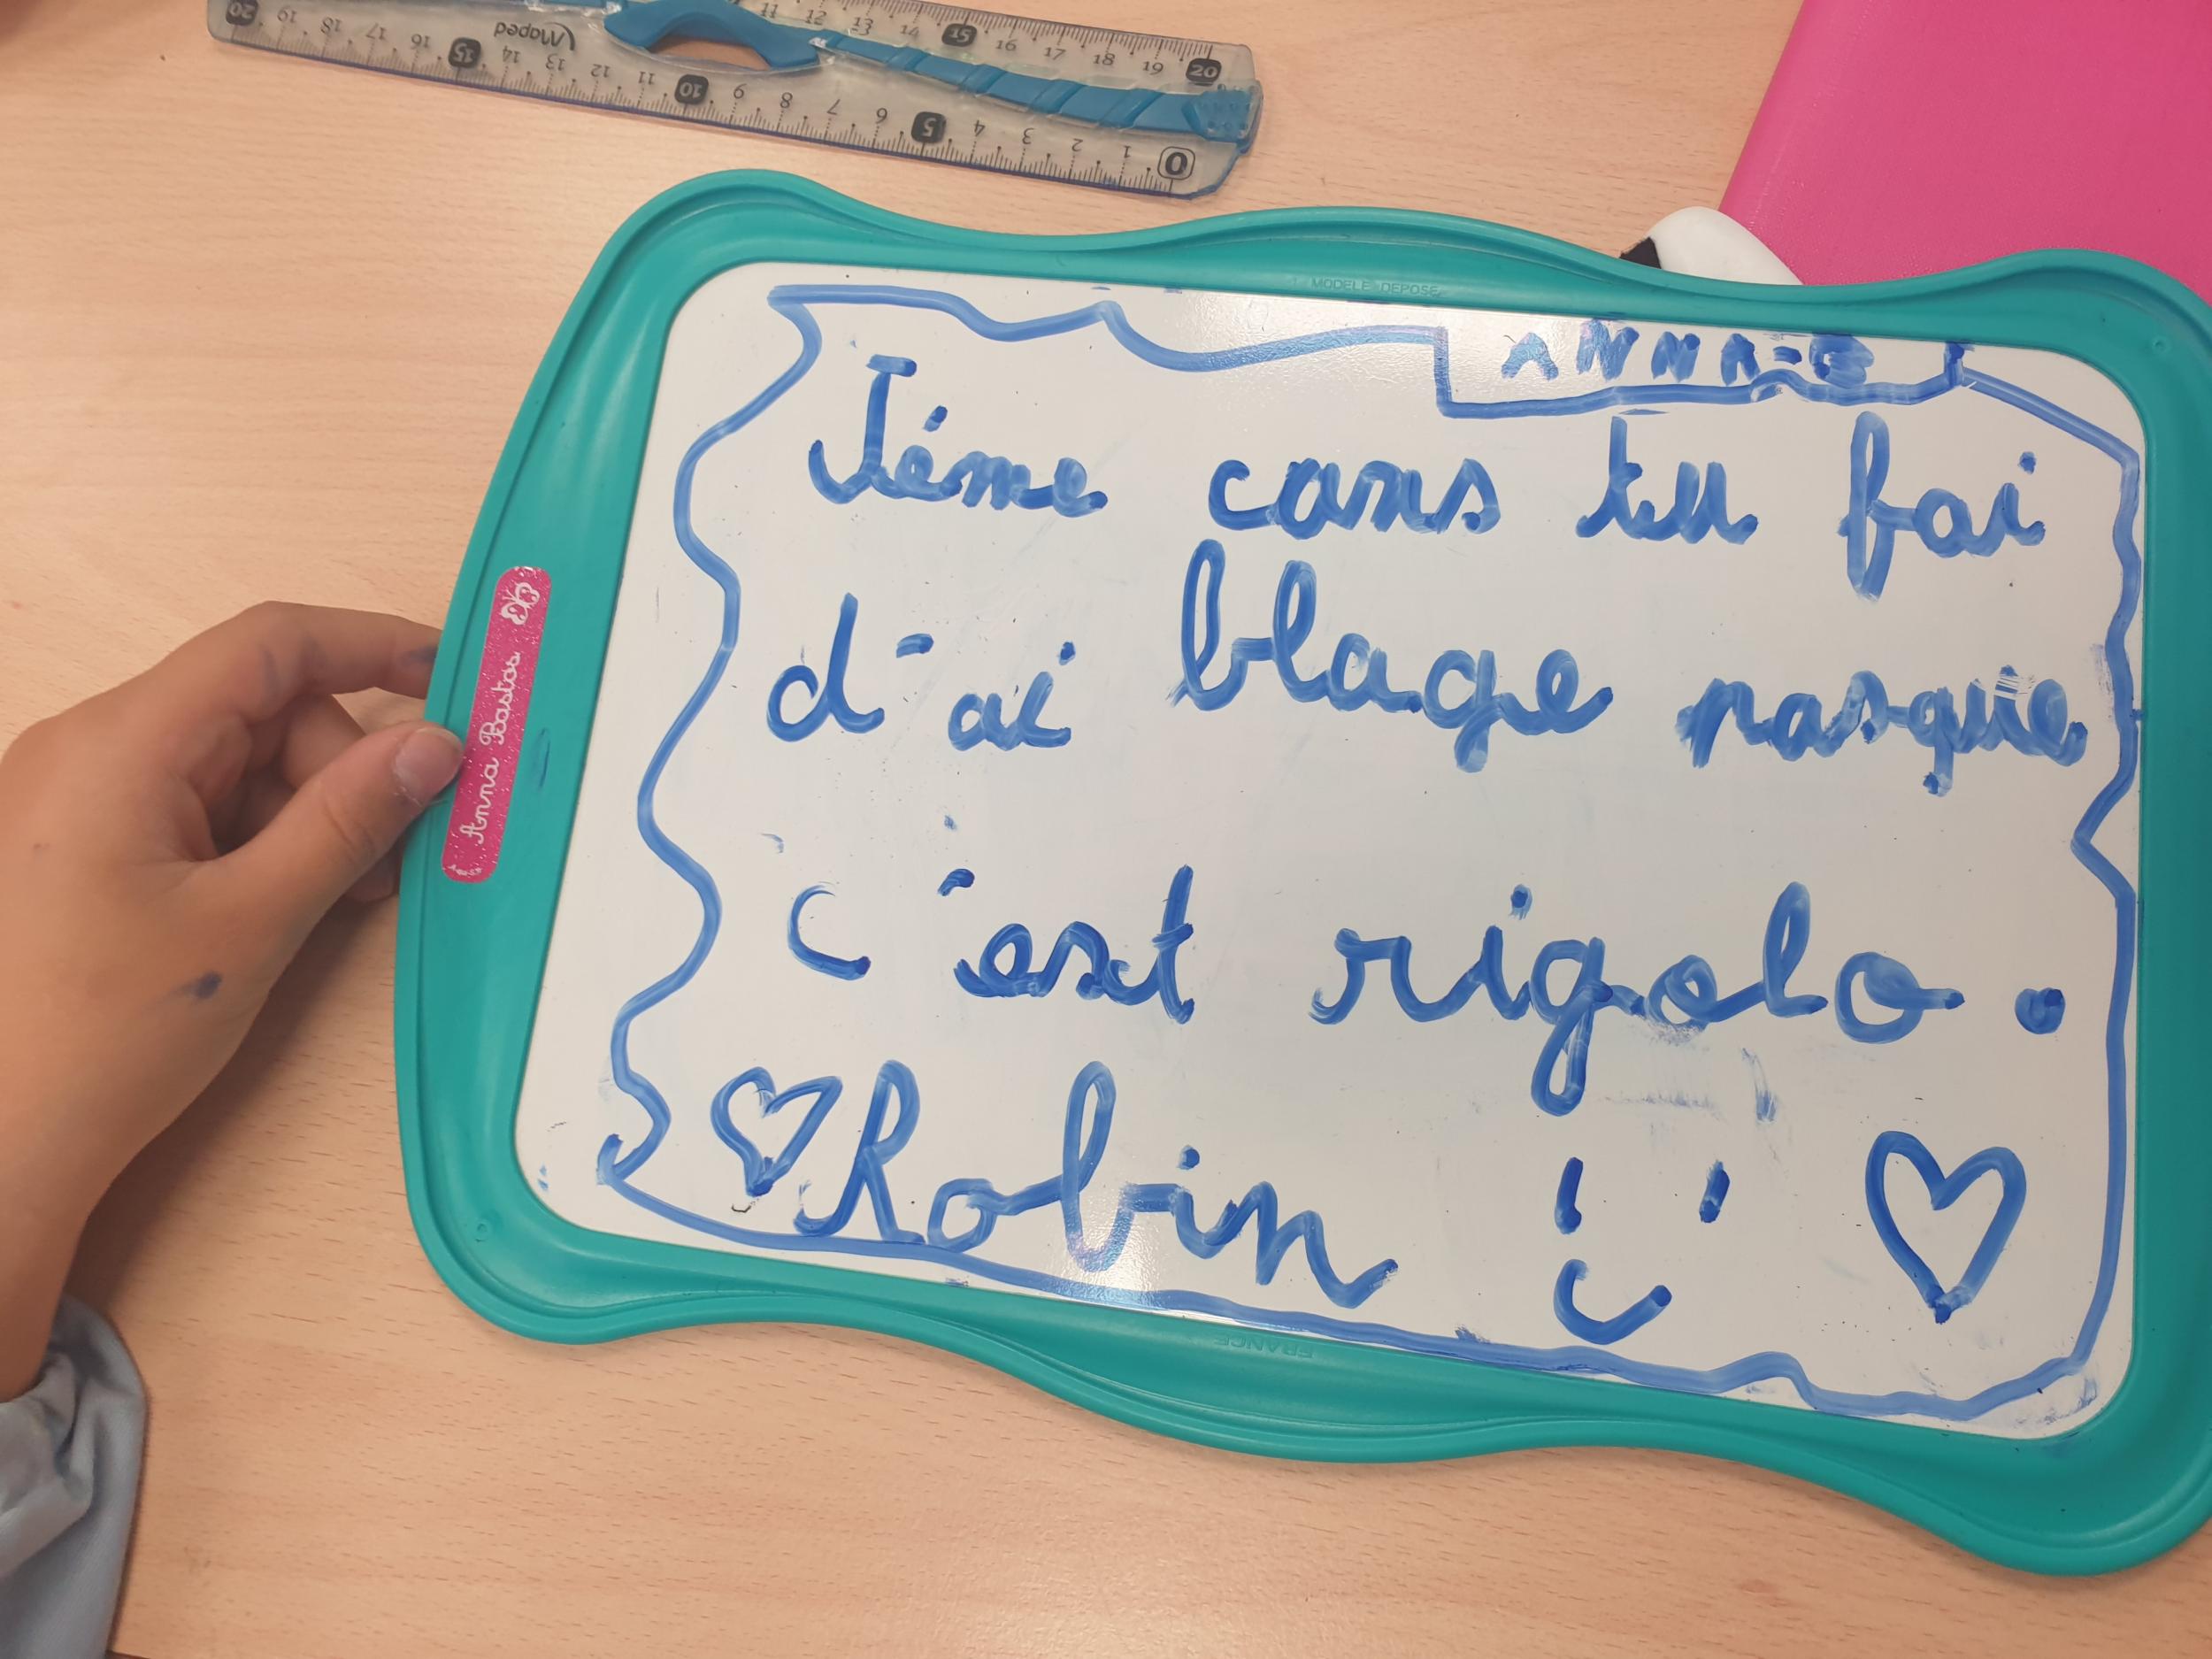 20 19 18 17 16 15 14 13 12 11 10 9 8 7 6 5 4 3 2 1 0
11 12 13 14 15 16 17 18 19 20
Maped
MODELE DEPOSE
ANNA-B
Jéme cans tu fai
d'ai blage pasque
c'est rigolo.
Robin
Anna Bastos
FRANCE